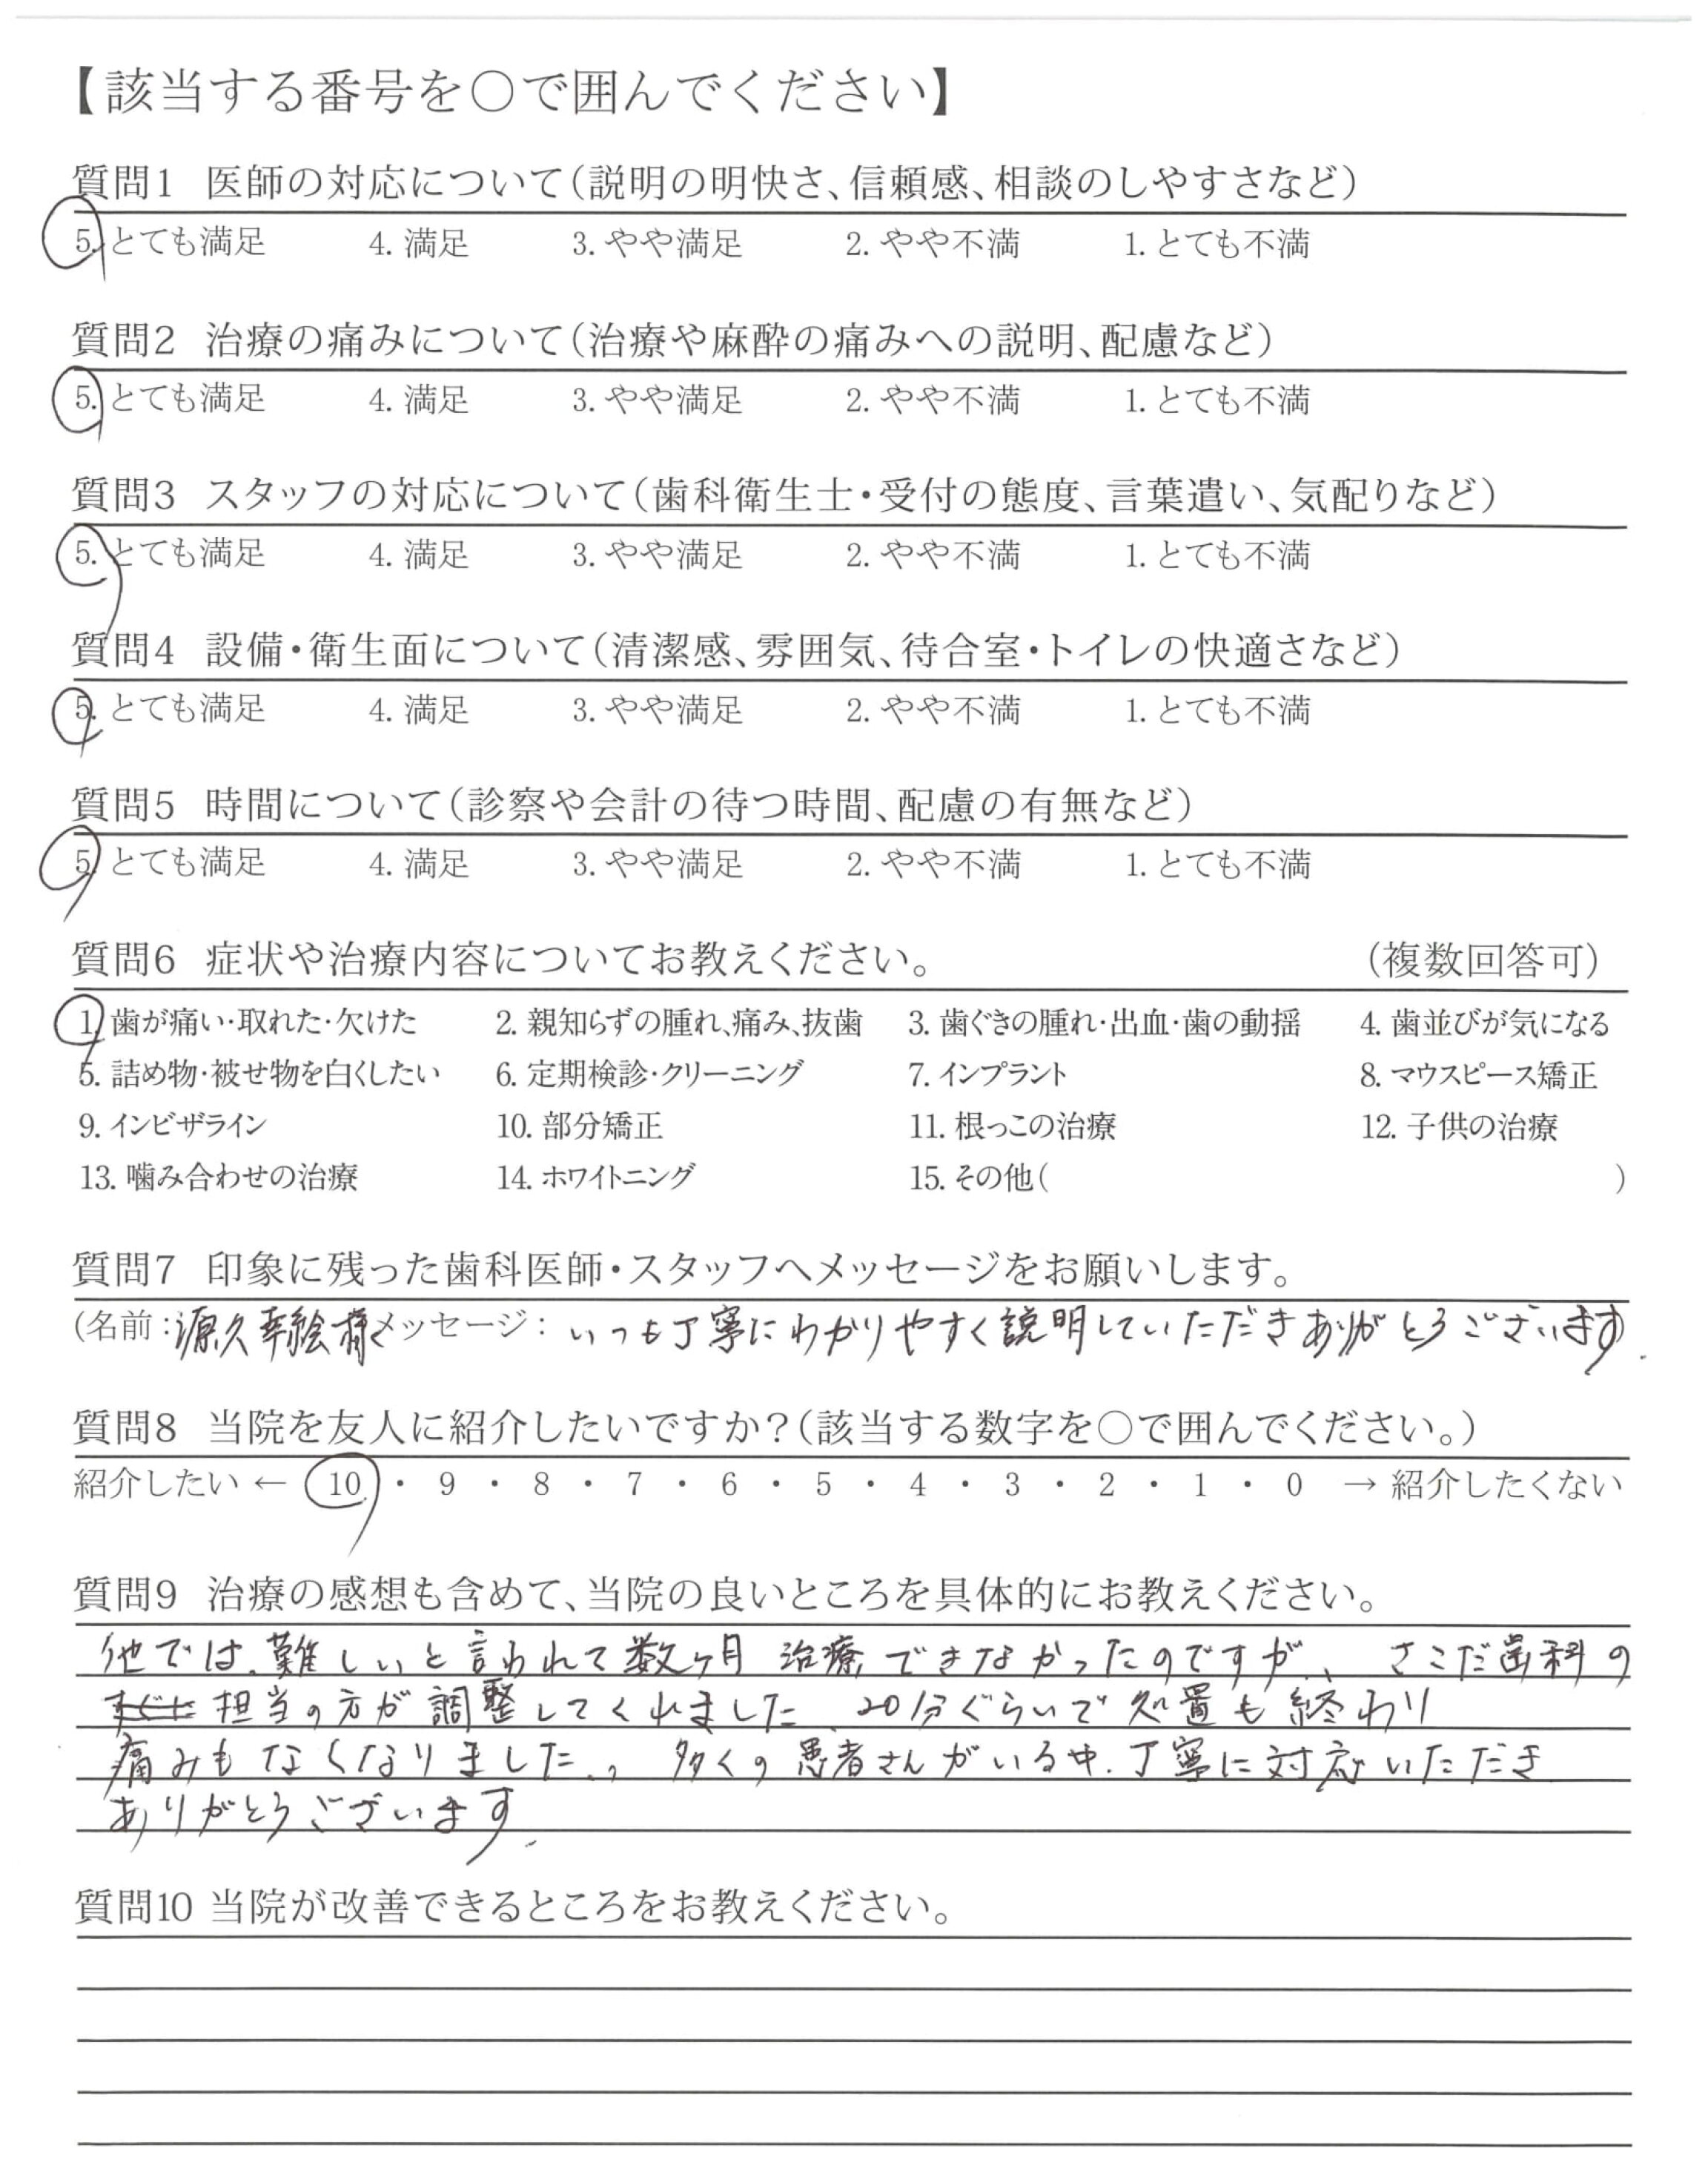 【該当する番号を○で囲んでください】
質問1 医師の対応について(説明の明快さ、信頼感、相談のしやすさなど)
5. とても満足 4. 満足 3. やや満足 2. やや不満 1. とても不満
質問2 治療の痛みについて(治療や麻酔の痛みへの説明、配慮など)
5. とても満足 4. 満足 3. やや満足 2. やや不満 1. とても不満
質問3 スタッフの対応について(歯科衛生士・受付の態度、言葉遣い、気配りなど)
5. とても満足 4. 満足 3. やや満足 2. やや不満 1. とても不満
質問4 設備・衛生面について(清潔感、雰囲気、待合室・トイレの快適さなど)
5. とても満足 4. 満足 3. やや満足 2. やや不満 1. とても不満
質問5 時間について(診察や会計の待つ時間、配慮の有無など)
5. とても満足 4. 満足 3. やや満足 2. やや不満 1. とても不満
質問6 症状や治療内容についてお教えください。 (複数回答可)
1. 歯が痛い・取れた・欠けた 2. 親知らずの腫れ、痛み、抜歯 3. 歯ぐきの腫れ・出血・歯の動揺 4. 歯並びが気になる
5. 詰め物・被せ物を白くしたい 6. 定期検診・クリーニング 7. インプラント 8. マウスピース矯正
9. インビザライン 10. 部分矯正 11. 根っこの治療 12. 子供の治療
13. 噛み合わせの治療 14. ホワイトニング 15. その他( )
質問7 印象に残った歯科医師・スタッフへメッセージをお願いします。
(名前:源久幸絵様 メッセージ: いつも丁寧にわかりやすく説明していただきありがとうございます)
質問8 当院を友人に紹介したいですか?(該当する数字を○で囲んでください。)
紹介したい ← 10 ・ 9 ・ 8 ・ 7 ・ 6 ・ 5 ・ 4 ・ 3 ・ 2 ・ 1 ・ 0 → 紹介したくない
質問9 治療の感想も含めて、当院の良いところを具体的にお教えください。
他では、難しいと言われて数ヶ月 治療できなかったのですが、さこだ歯科の
担当の方が調整してくれました。20分ぐらいで処置も終わり
痛みもなくなりました。。多くの患者さんがいる中、丁寧に対応いただき
ありがとうございます。
質問10 当院が改善できるところをお教えください。